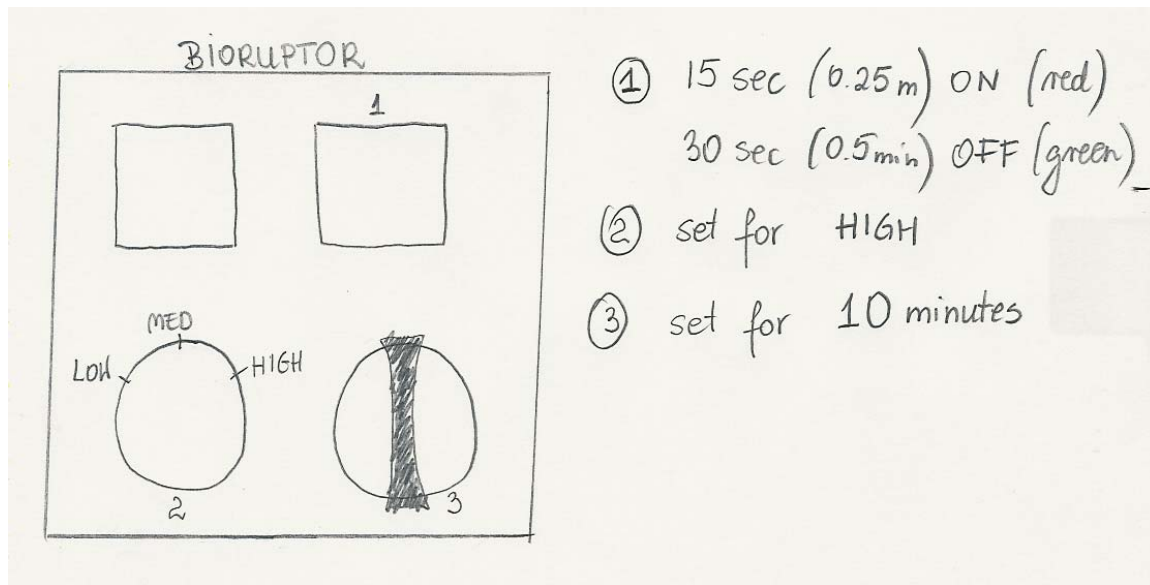 BIORUPTOR
1
MED
LOW
HIGH
2
3
① 15 sec (0.25 m) ON (red)
30 sec (0.5 min) OFF (green)
② set for HIGH
③ set for 10 minutes